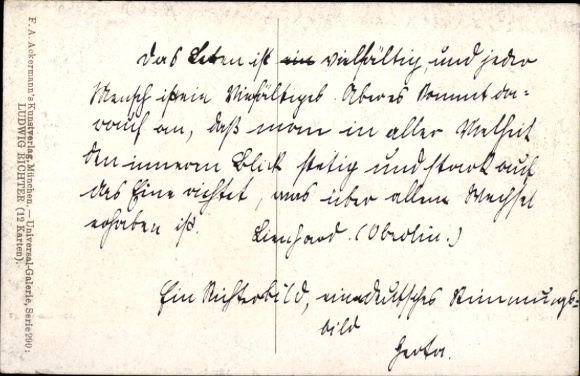 das Leben ist ein vielfältig, und jeder
Mensch ist ein Vielfältiges. Aber es kommt da-
rauf an, daß man in aller Vielheit
den inneren Blick stetig und stark auf
das Eine richtet, was über allem Wechsel
erhaben ist. Lienhard. (Oberlin.)
Ein Richterbild, ein deutsches Stimmungs-
bild
F. A. Ackermann's Kunstverlag, München. — Universal-Galerie, Serie 290:
LUDWIG RICHTER (12 Karten).